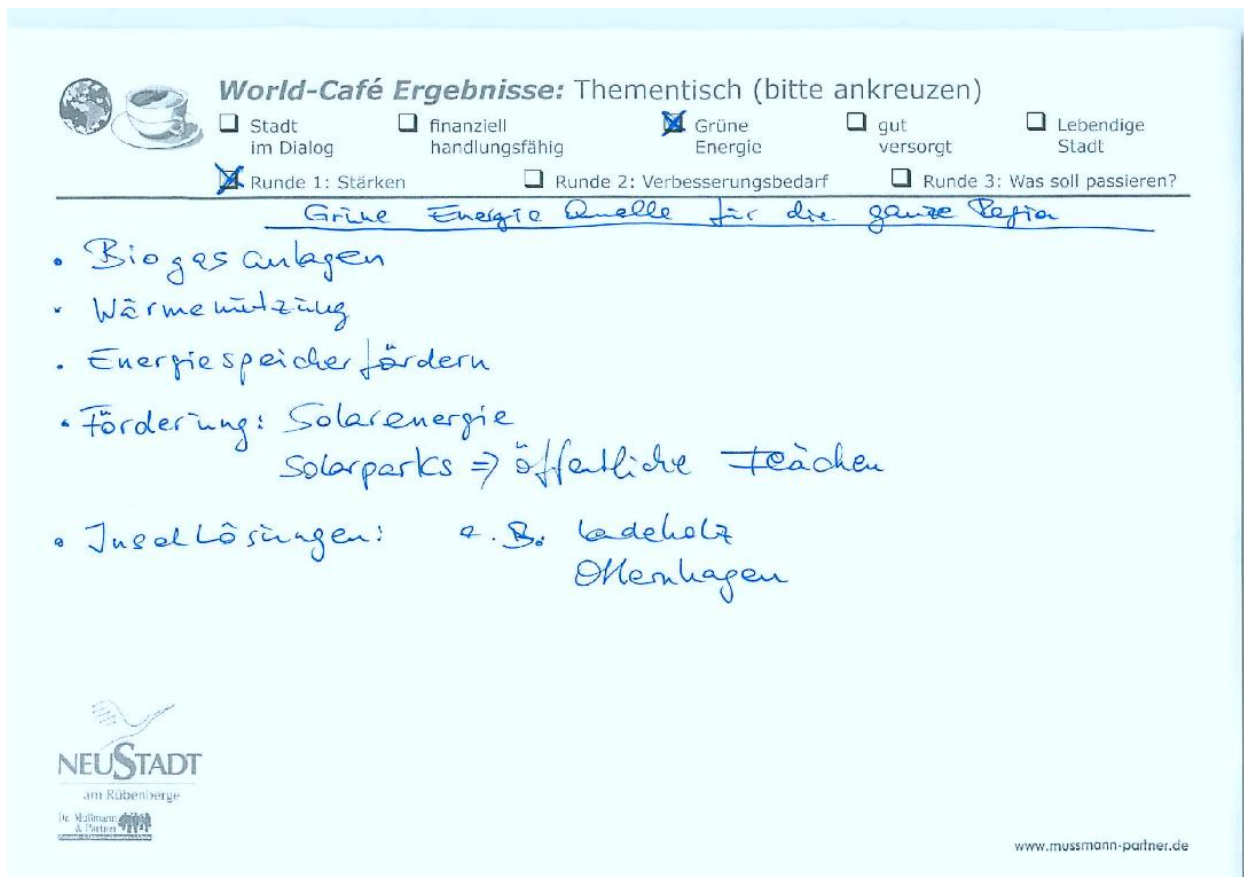 World-Café Ergebnisse: Thementisch (bitte ankreuzen)
Stadt im Dialog
finanziell handlungsfähig
Grüne Energie
gut versorgt
Lebendige Stadt
Runde 1: Stärken
Runde 2: Verbesserungsbedarf
Runde 3: Was soll passieren?
Grüne Energie Quelle für die ganze Region
• Biogasanlagen
• Wärmenutzung
• Energiespeicher fördern
• Förderung: Solarenergie
Solarparks => öffentliche Flächen
• Insellösungen: z. B. Ladeholz
Otternhagen
NEUSTADT
am Rübenberge
Dr. Mußmann
& Partner
www.mussmann-partner.de